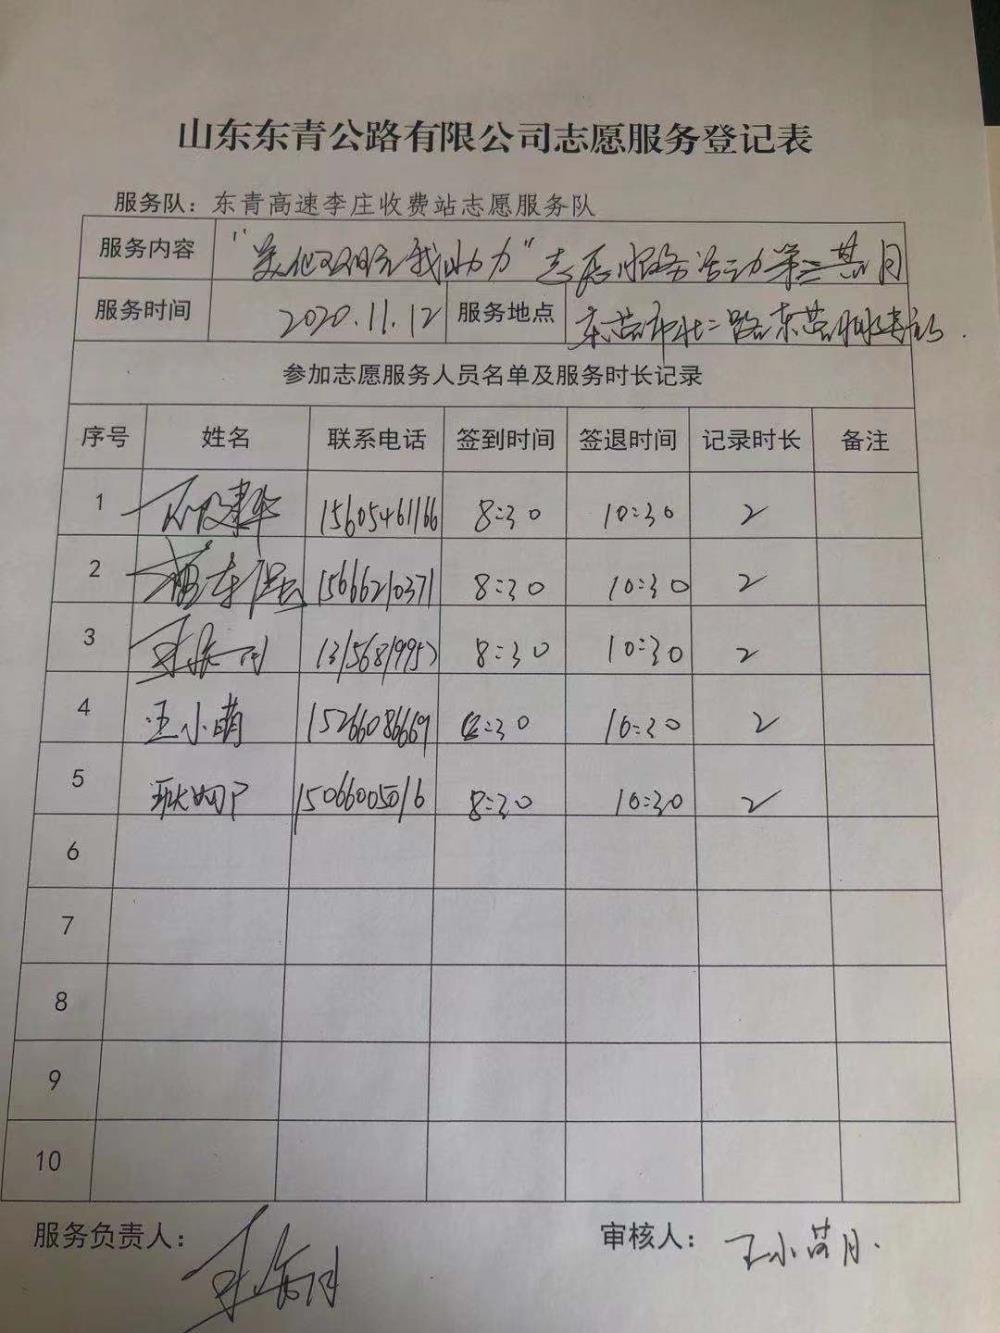 山东东青公路有限公司志愿服务登记表
服务队：东青高速李庄收费站志愿服务队
服务内容 我助力"志愿服务活动第三期
服务时间 2020.11.12 服务地点 东营市北二路东营
参加志愿服务人员名单及服务时长记录
序号 姓名 联系电话 签到时间 签退时间 记录时长 备注
1 15605461166 8:30 10:30 2
2 15666210371 8:30 10:30 2
3 8:30 10:30 2
4 王小萌 15266086669 8:30 10:30 2
5 15066005016 8:30 10:30 2
6
7
8
9
10
服务负责人：
审核人：王小萌